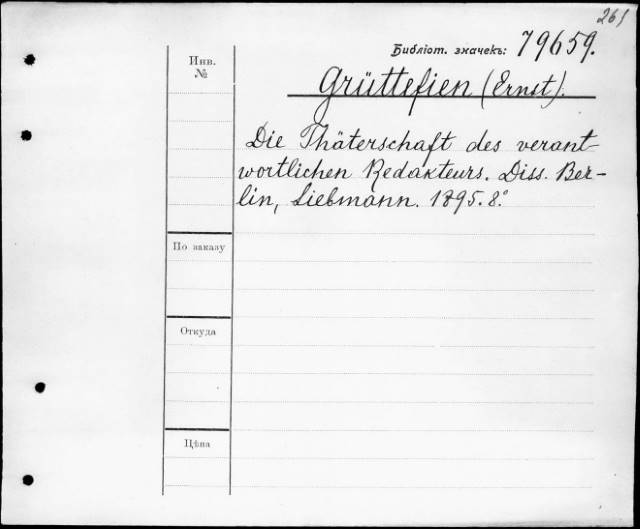 261
Библіот. значекъ: 79659.
Инв.
№
Grüttefien (Ernst).
Die Thäterschaft des verant-
wortlichen Redakteurs. Diss. Ber-
lin, Liebmann. 1895. 8.°
По заказу
Откуда
Цѣна